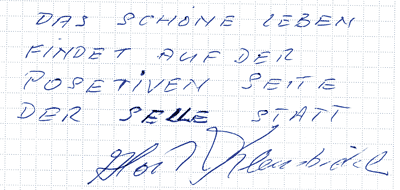 DAS SCHÖNE LEBEN
FINDET AUF DER
POSETIVEN SEITE
DER SEELE STATT